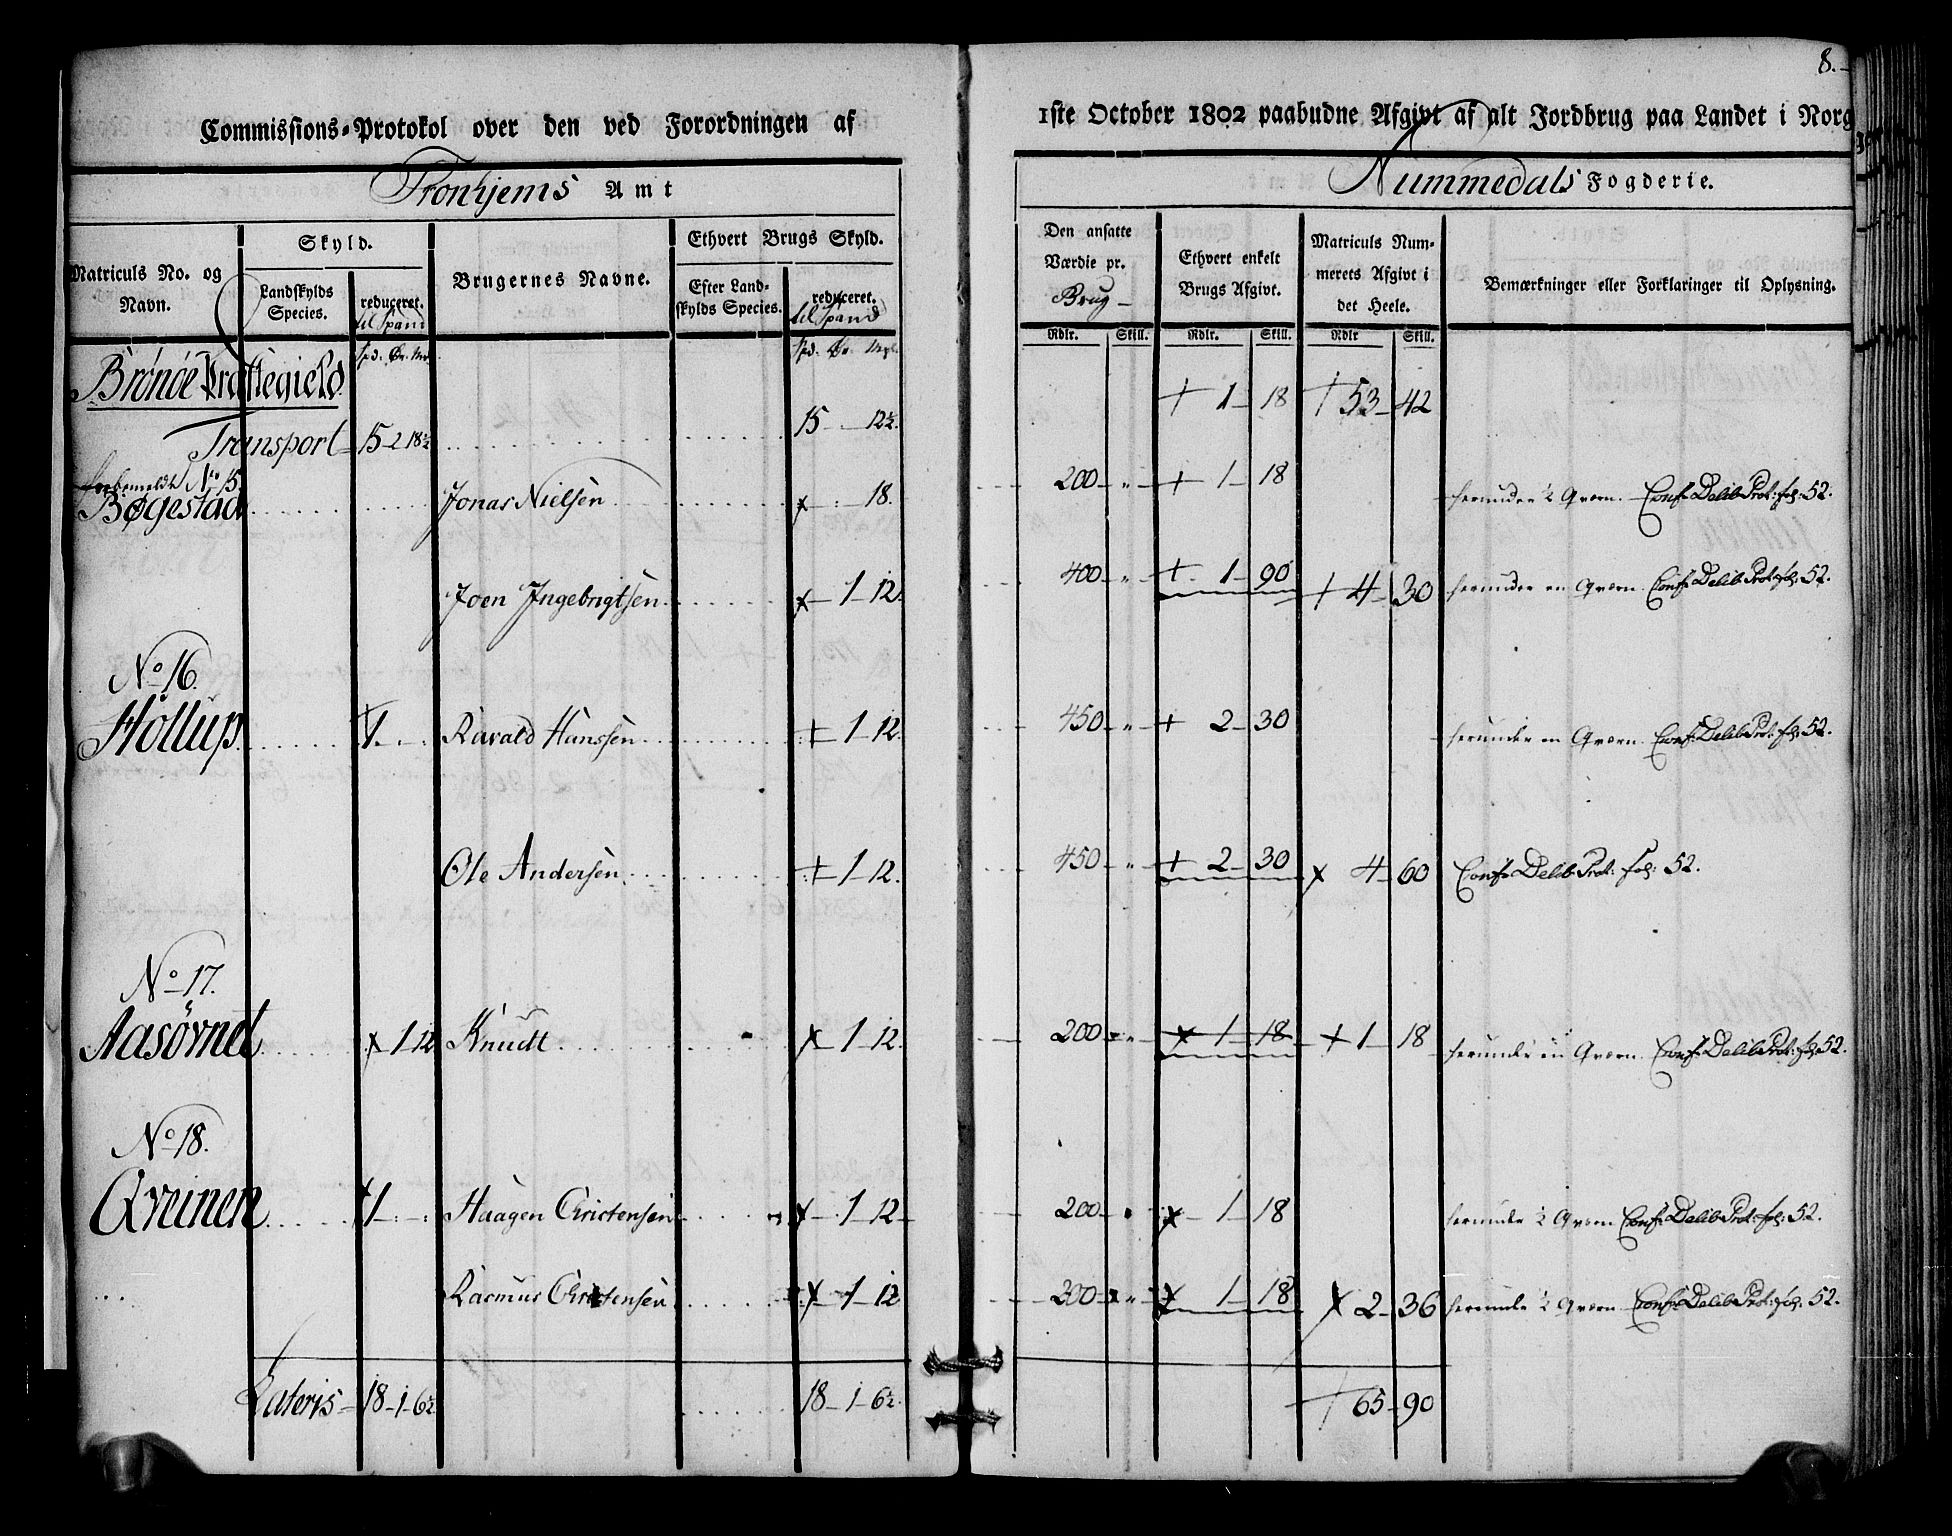 8.
Commissions-Protokol over den ved Forordningen af 1ste October 1802 paabudne Afgivt af alt Jordbrug paa Landet i Norg
Tronhjems Amt
Nummedals Fogderie.
Matriculs No. og Navn.
Skyld.
Landskylds Species.
reduceret. til Spand
Brugernes Navne.
Ethvert Brugs Skyld.
Efter Landskylds Species.
reduceret. til Spand
Den ansatte Værdie pr. Brug
Ethvert enkelt Brugs Afgivt.
Matriculs Nummerets Afgivt i det Heele.
Bemærkninger eller Forklaringer til Oplysning.
Rdlr. Skill. Rdlr. Skill. Rdlr Skill.
Brönöe Præstegield
Transport 15 2 18½ 15 12½. + 1 18 + 53 42
No 15.
Bøgestad Jonas Nielsen 18. 200 + 1 18 herunder ½ Qværn. Conf. Delib. Prot: fol: 52.
Joen Ingebrigtsen 1 12. 400 + 1 90 + 4 30 herunder en Qværn. Conf. Delib. Prot: fol: 52.
No 16.
Hollup 1 Ravald Hanssen + 1 12. 450 + 2 30 herunder en Qværn. Conf. Delib. Prot: fol: 52.
Ole Andersen + 1 12. 450 + 2 30 x 4 60 Conf. Delib. Prot: fol: 52.
No 17.
Aasövnet x 1 12 Knudt x 1 12. 200 x 1 18 + 1 18 herunder en Qværn. Conf. Delib. Prot: fol: 52.
No 18.
Qveinen 1 Haagen Christensen x 1 12 200 x 1 18 herunder ½ Qværn Conf. Delib. Prot: fol: 52.
Rasmus Christensen x 1 12 200 x 1 18 x 2 36 herunder ½ Qværn. Conf. Delib. Prot: fol: 52.
Lateris 18 1 6½ 18 1 6½. + 65 90